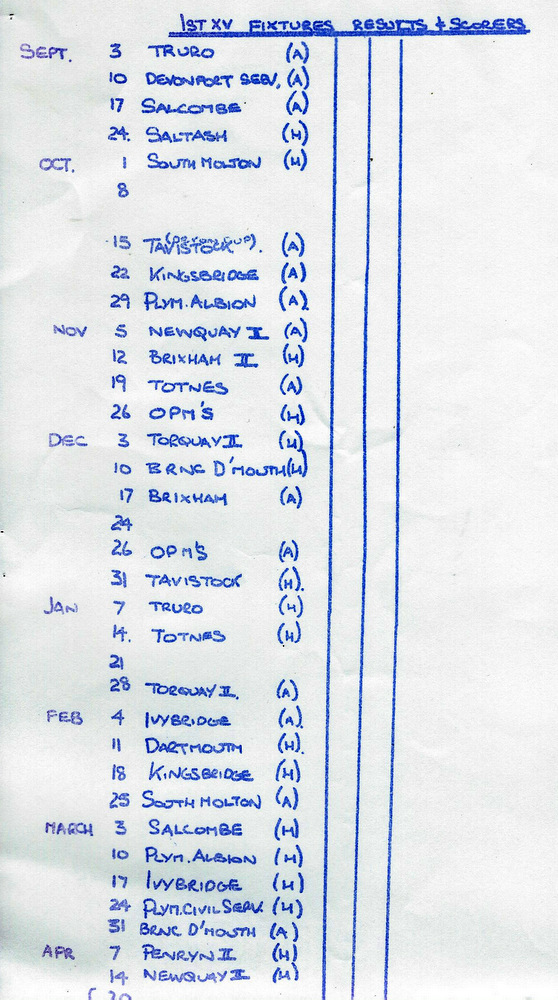 1ST XV FIXTURES RESULTS & SCORERS
SEPT. 3 TRURO (A)
10 DEVONPORT SERV. (A)
17 SALCOMBE (A)
24. SALTASH (H)
OCT. 1 SOUTH MOLTON (H)
8
15 TAVISTOCK (A)
22 KINGSBRIDGE (A)
29 PLYM. ALBION (A).
NOV 5 NEWQUAY II (A)
12 BRIXHAM II (H)
19 TOTNES (A)
26 OPM'S (H)
DEC 3 TORQUAY II (H)
10 BRNC D'MOUTH (H)
17 BRIXHAM (A)
24
26 OPM'S (A)
31 TAVISTOCK (H).
JAN 7 TRURO (H)
14. TOTNES (H)
21
28 TORQUAY II. (A)
FEB 4 IVYBRIDGE (A).
11 DARTMOUTH (H).
18 KINGSBRIDGE (H)
25 SOUTH MOLTON (A)
MARCH 3 SALCOMBE (H)
10 PLYM. ALBION (H)
17 IVYBRIDGE (H)
24 PLYM. CIVIL SERV. (H)
31 BRNC D'MOUTH (A)
APR 7 PENRYN II (H)
14 NEWQUAY II (H)